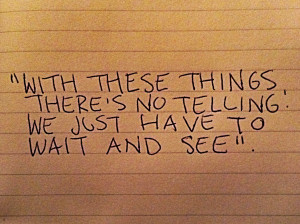 "WITH THESE THINGS
THERE'S NO TELLING.
WE JUST HAVE TO
WAIT AND SEE".